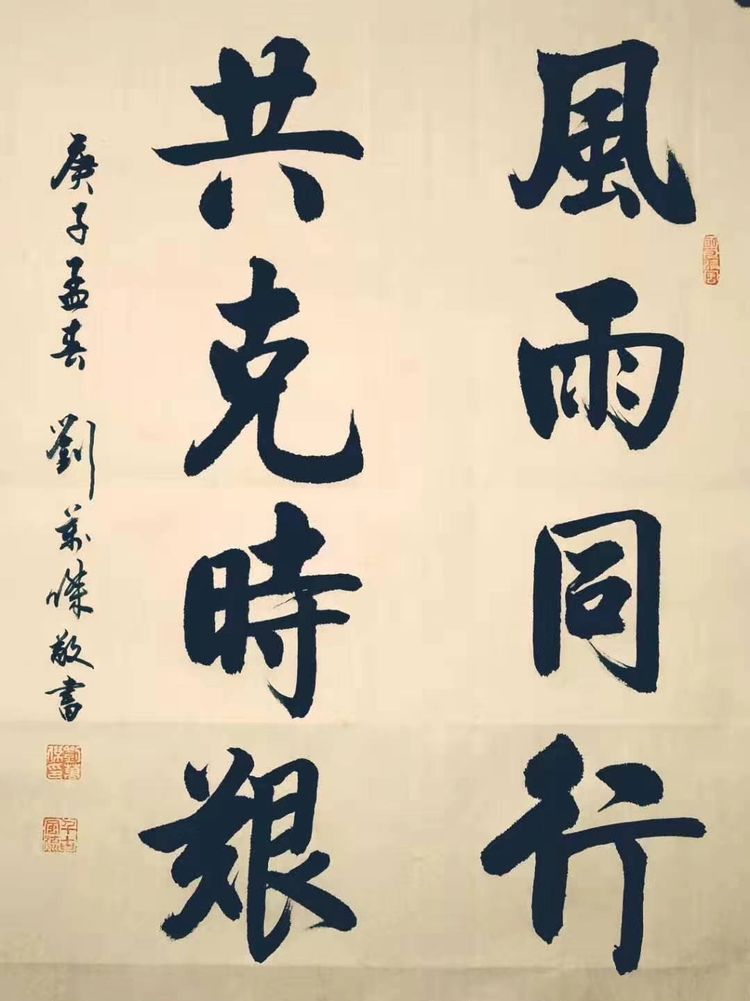 風雨同行
共克時艱
庚子孟春 劉萬傑敬書